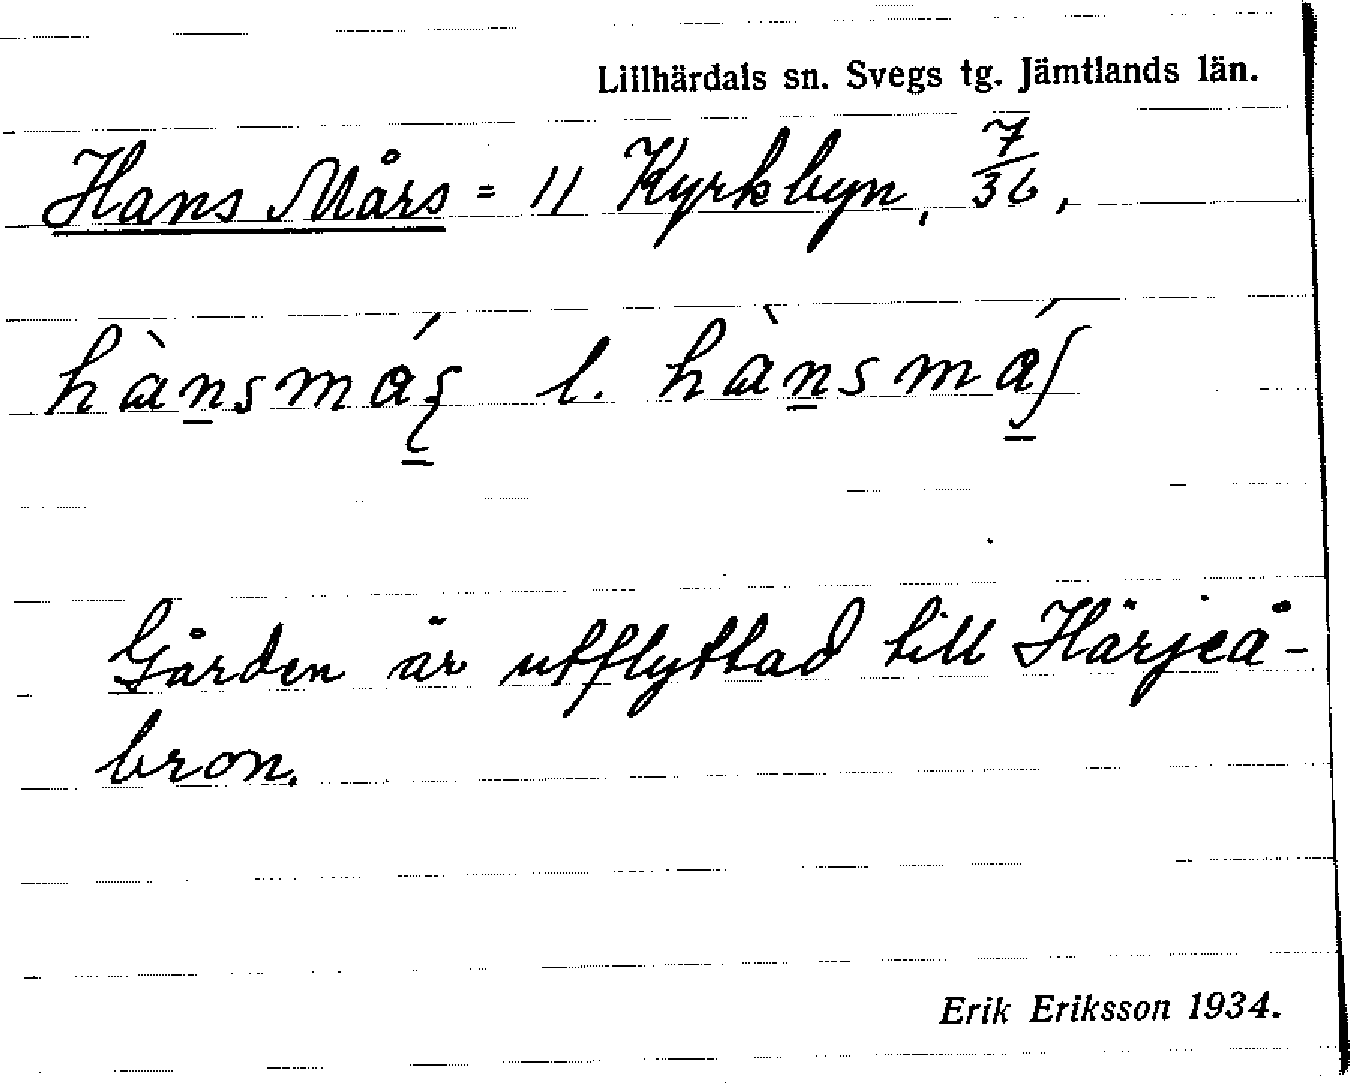 Lillhärdals sn. Svegs tg. Jämtlands län.
Hans Mårs = 11 Kyrkbyn, 7/36,
hànsmáş l. hànsmáʃ
Gården är utflyttad till Härjeå-
bron.
Erik Eriksson 1934.